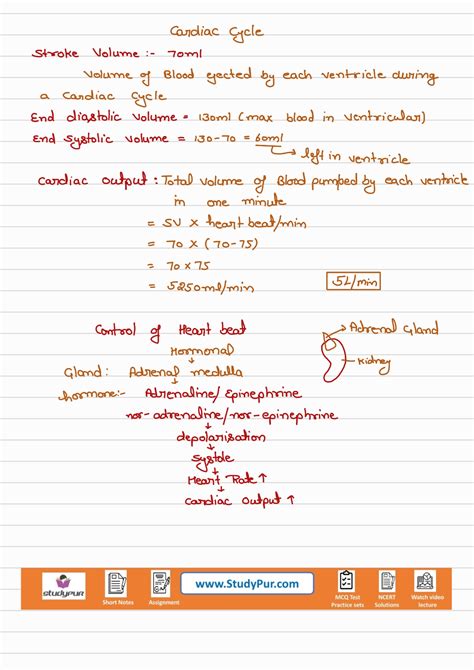 Cardiac Cycle
Stroke Volume :- 70ml
Volume of Blood ejected by each ventricle during
a Cardiac Cycle
End diastolic volume = 130ml (max blood in ventricular)
End systolic volume = 130-70 = 60ml
left in ventricle
Cardiac output : Total volume of Blood pumped by each ventricle
in one minute
= SV × heart beat/min
= 70 × (70-75)
= 70 × 75
= 5250ml/min
5L/min
Control of Heart beat
Hormonal
Adrenal Gland
Kidney
Gland: Adrenal medulla
hormone:- Adrenaline/Epinephrine
nor-adrenaline/nor-epinephrine
depolarisation
systole
Heart Rate ↑
Cardiac output ↑
studypur
Short Notes
Assignment
www.StudyPur.com
MCQ Test
Practice sets
NCERT
Solutions
Watch video
lecture